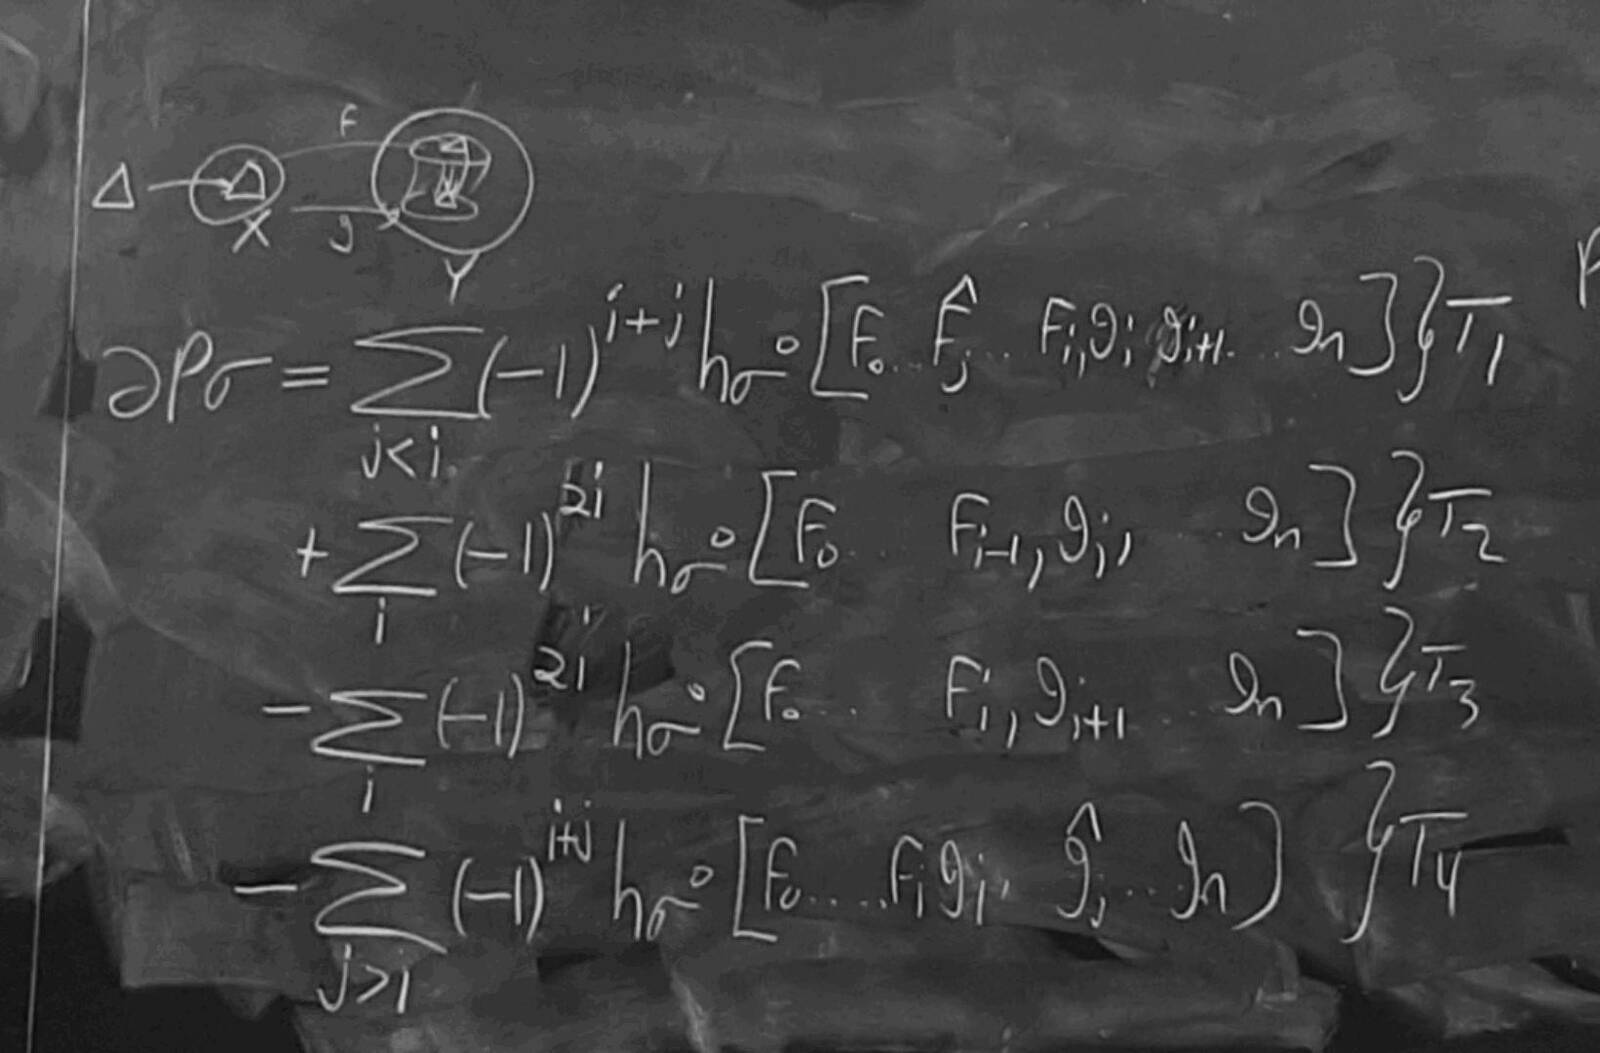 F
Δ Δ
X g
Y
∂Pσ = ∑_{j<i} (-1)^{i+j} h_σ ∘ [F_0 .. F̂_j ... F_i, g_i g_{i+1} .. g_n] } T_1
+ ∑_i (-1)^{2i} h_σ ∘ [F_0 .. F_{i-1}, g_i, .. g_n] } T_2
- ∑_i (-1)^{2i} h_σ ∘ [F_0 ... F_i, g_{i+1} .. g_n] } T_3
- ∑_{j>i} (-1)^{i+j} h_σ ∘ [F_0 ..... F_i g_i, ĝ_j .. g_n] } T_4